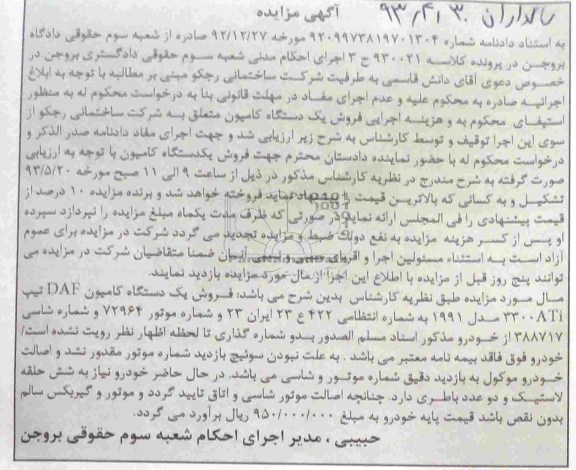 پاسداران ۹۳٫۴٫۳۰
آگهی مزایده
به استناد دادنامه شماره ۹۳۰۹۹۷۳۸۱۹۷۰۱۳۰۴ مورخه ۹۲/۱۲/۲۷ صادره از شعبه سوم حقوقی دادگاه
بروجن در پرونده کلاسه ۹۳۰۰۲۱ ح ۳ اجرای احکام مدنی شعبه سوم حقوقی دادگستری بروجن در
خصوص دعوی آقای دانش قاسمی به طرفیت شرکت ساختمانی رجکو مبنی بر مطالبه با توجه به ابلاغ
اجرائیه صادره به محکوم علیه و عدم اجرای مفاد در مهلت قانونی بنا به درخواست محکوم له به منظور
استیفای محکوم به و هزینه اجرایی فروش یک دستگاه کامیون متعلق به شرکت ساختمانی رجکو از
سوی این اجرا توقیف و توسط کارشناس به شرح زیر ارزیابی شد و جهت اجرای مفاد دادنامه صدر الذکر و
درخواست محکوم له با حضور نماینده دادستان محترم جهت فروش یکدستگاه کامیون با توجه به ارزیابی
صورت گرفته به شرح مندرج در نظریه کارشناس مذکور در ذیل از ساعت ۹ الی ۱۱ صبح مورخه ۹۳/۵/۲۰
تشکیل و به کسانی که بالاترین قیمت را پیشنهاد نماید فروخته خواهد شد و برنده مزایده ۱۰ درصد از
قیمت پیشنهادی را فی المجلس ارائه نماید در صورتی که ظرف مدت یکماه مبلغ مزایده را نپردازد سپرده
او پس از کسر هزینه مزایده به نفع دولت ضبط و مزایده تجدید می گردد شرکت در مزایده برای عموم
آزاد است به استثناء مسئولین اجرا و اقربای نسبی و سببی آنان ضمنا متقاضیان شرکت در مزایده می
توانند پنج روز قبل از مزایده با اطلاع این اجرا از مال مورد مزایده بازدید نمایند.
مال مورد مزایده طبق نظریه کارشناس بدین شرح می باشد: فروش یک دستگاه کامیون DAF تیپ
۳۳۰۰ATi مدل ۱۹۹۱ به شماره انتظامی ۴۲۲ ع ۲۳ ایران ۲۳ و شماره موتور ۷۲۹۶۴ و شماره شاسی
۳۸۸۷۱۷ از خودرو مذکور اسناد مسلم الصدور بدو شماره گذاری تا لحظه اظهار نظر رویت نشده است/
خودرو فوق فاقد بیمه نامه معتبر می باشد . به علت نبودن سوئیچ بازدید شماره موتور مقدور نشد و اصالت
خودرو موکول به بازدید دقیق شماره موتور و شاسی می باشد. در حال حاضر خودرو نیاز به شش حلقه
لاستیک و دو عدد باطری دارد. چنانچه اصالت موتور شاسی و اتاق تایید گردد و موتور و گیربکس سالم
بدون نقص باشد قیمت پایه خودرو به مبلغ ۹۵۰/۰۰۰/۰۰۰ ریال برآورد می گردد.
حبیبی ، مدیر اجرای احکام شعبه سوم حقوقی بروجن